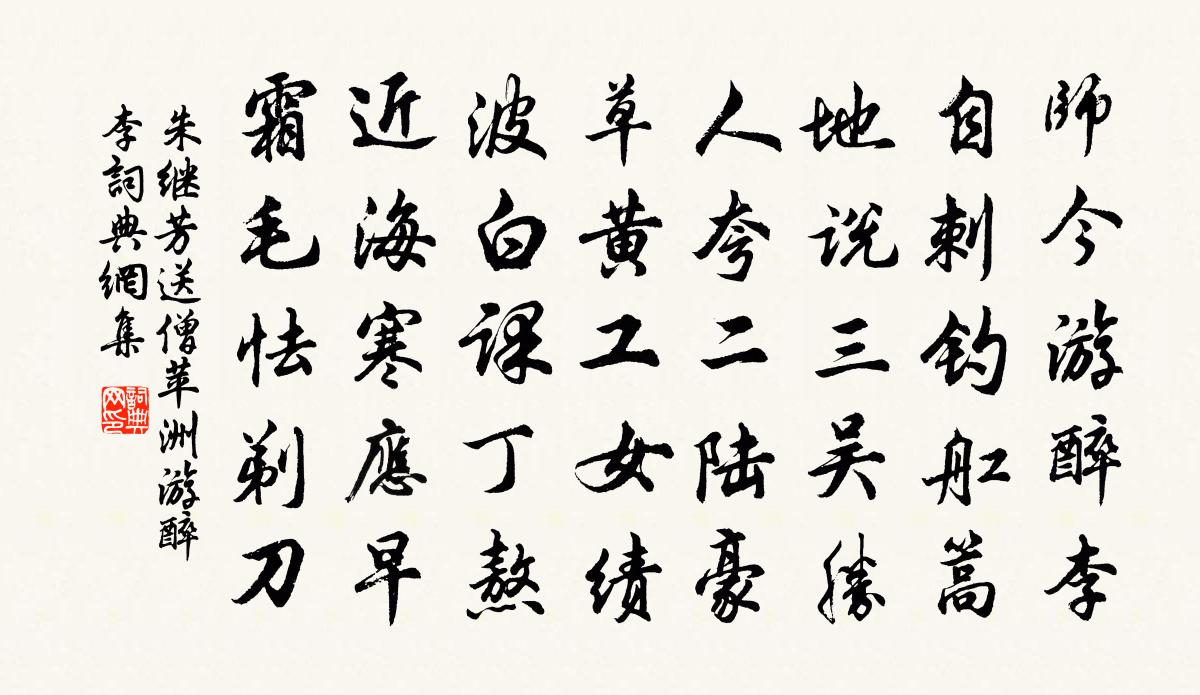 師今游醉李
自刺釣舡蒿
地説三吴勝
人夸二陆豪
草黄工女绩
波白課丁熬
近海寒應早
霜毛怯剃刀
朱继芳送僧苹洲游醉
李詞典網集
詞典网印